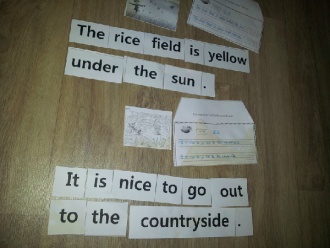 The rice field is yellow
under the sun .
It is nice to go out
to the countryside .